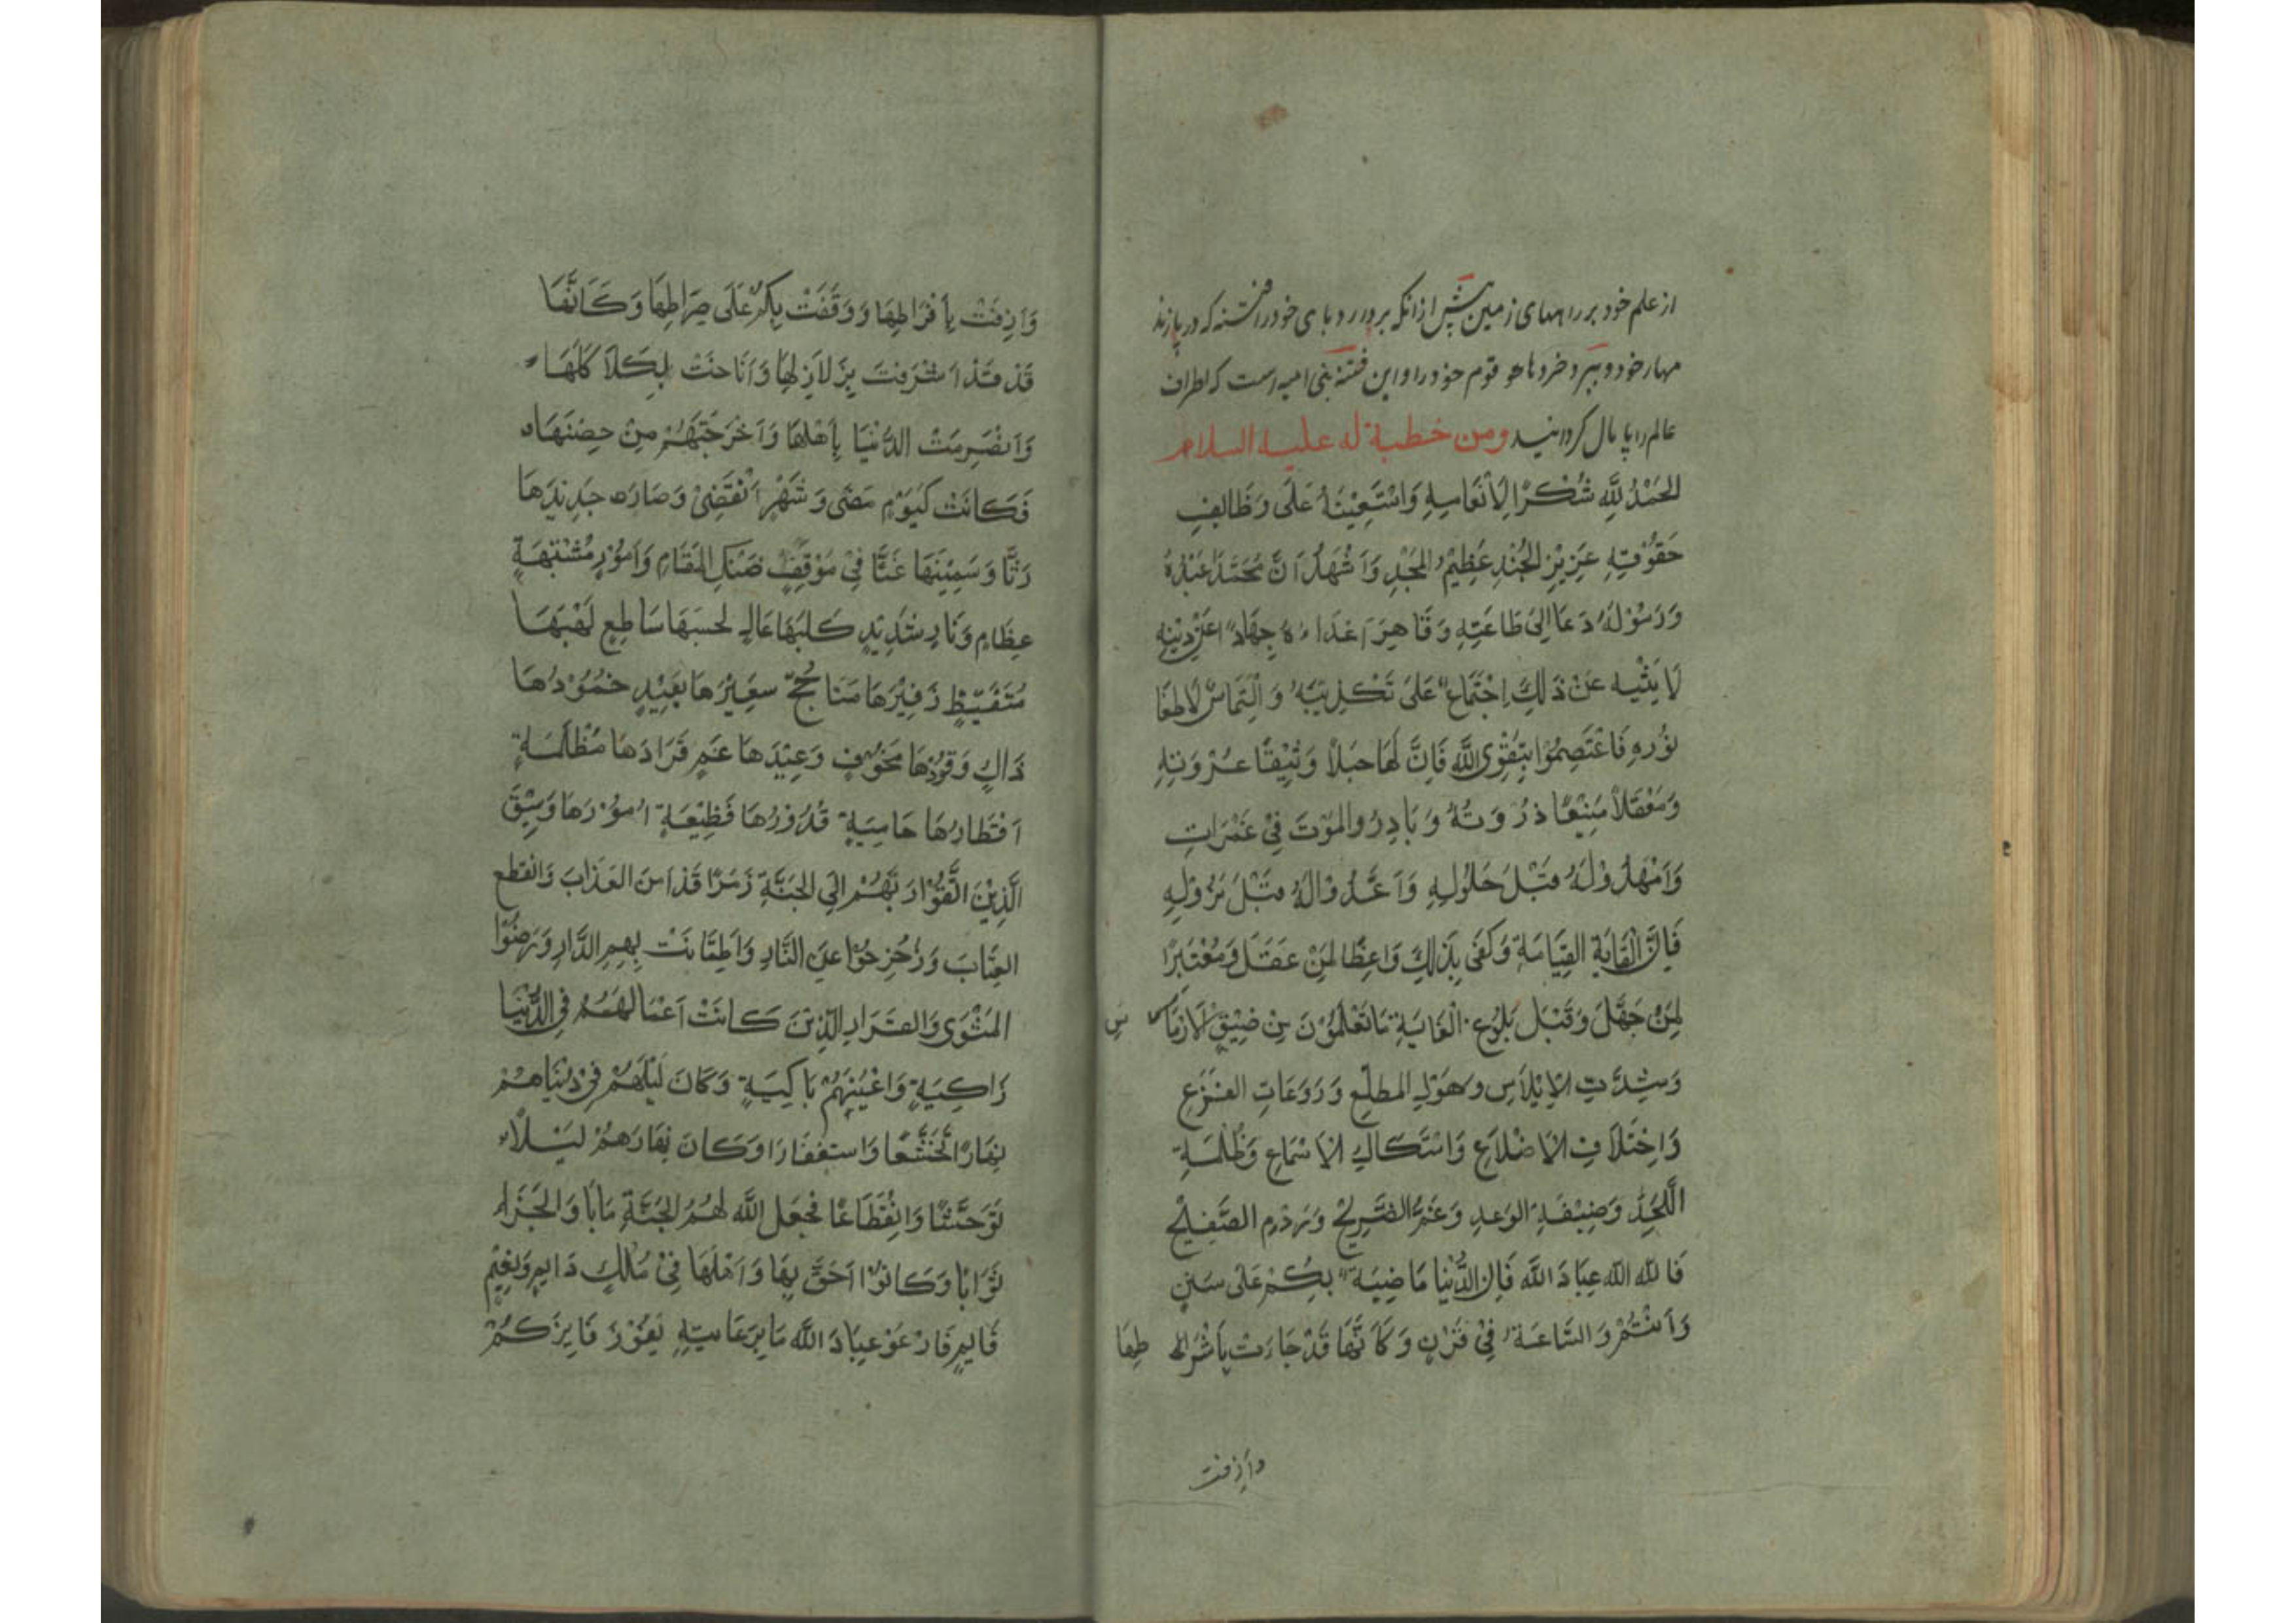 از علم خود بر راههای زمین پیش ازانکه بردارد پای خود را فتنه که در پا زند
مهار خود و ببرد خردهاء قوم خود را و این فتنهٔ بنی امیه است که اطراف
عالم را پا بال کردانید ومن خطبة له علیه السلام
الحَمْدُ لِلَّهِ شُكْرًا لِاَنْعَامِهِ وَاسْتَعِيْنَهُ عَلَى وَظَائِفِ
حَقُوْقِهِ عَزِيْزِ الجُنْدِ عَظِيْمُ المَجْدِ وَاَشْهَدُ اَنَّ مُحَمَّدًا عَبْدُهُ
وَرَسُوْلُهُ دَعَا اِلىَ طَاعَتِهِ وَقَاهَرَ اَعْدَاءُهُ جِهَادًا عَنْ دِيْنِهِ
لَا يَثْنِيهِ عَنْ ذَلِكَ اِجْتَمَاعٌ عَلىَ تَكْذِيْبِهُ وَ الْتِمَاسٌ لِاَطفَا
نُوْرِهِ فَاعْتَصِمُوْا بِتَقْوَى اللَّهِ فَاِنَّ لَهَا حَبْلاً وَثِيْقًا عُرْوَتِهِ
وَمَعْقَلاً مَنِيْعًا ذُرْوَتُهُ وَ بَادِرُوا المَوْتَ فِيْ غَمْرَاتِ
وَامْهَدُوْلَهُ قَبْلَ حَلُولِهِ وَاَعَدُّوْالَهُ قَبْلَ نُزُوْلِهِ
فَاِنَّ الْغَايَةِ القِيَامَةِ وَكَفَى بِذَلِكَ وَاعِظًا لِمَنْ عَقَلَ وَمُعْتَبَرًا
لِمَنْ جَهَلَ وَقَبْلَ بَلُوْغِ الْغَايَةِ مَا تَعْلَمُوْنَ مِنْ ضِيْقِ لَارْمَا سِ
وَشِدَّتِ الاِبْلاَسِ وَهَوْلِ المطلّعِ وَرَوَعَاتِ الفَزَعِ
وَاخِتْلاَفِ الاَضْلاَعِ وَاسْتِكَاكِ الاَسْمَاعِ وَظُلْمَةِ
اللَّحْدِ وَضِيْفَةِ الوَعدِ وَغَمِّ الضَّرِيْحِ وَرَدْمِ الصَّفِيْحِ
فَاللهَ اللهَ عِبَادَ اللهِ فَاِنَّ الدُّنْيَا مَاضِيَةٌ بِكُمْ عَلَى سَنَنٍ
وَاَنْتُمْ وَالسَّاعَةُ فِيْ قَرْنٍ وَ كَاَنَّهَا قَدْ جَاءَتْ بِاَشْرَا طِهَا
واَزفت
وَاَزِفَتْ بِاَفْرَاطِهَا وَ وَقَفَتْ بِكُمْ عَلَى صِرَاطِهَا وَكَاَنَّهَا
قَدْ قَدْ اَشْرَفَتْ بِزَلاَزِلِهَا وَاَنَاخَتْ بِكَلاَكَلِهَا
وَانْصَرِمَتْ الدُّنْيَا بِاَهْلِهَا وَاَخْرَجَتْهُمْ مِنْ حِصْنِهَا
فَكَانَتْ كَيَوْمٍ مَضَى وَ شَهْرٍ اَنْقَضِىْ وَصَارَ جَدِيْدَهَا
رَثًّا وَسَمِيْنَهَا غَثًّا فِيْ مَوْقِفٍ ضَنْكِ المَقَامِ وَاَمُوْرٍ مُشْتَبَهَةٍ
عِظَامٍ وَنَارٍ شَدِيْدٍ كَلَبَهَا عَالٍ لحسبَهَا سَاطِعٍ لَهْبَهَا
مُتَغَيِّظٍ زَفِيْرَهَا سَعِيْرُهَا بَعِيْدٍ خمُوْدُهَا
ذَاكٍ وَقُوْدُهَا مَخَوْفٍ وَعِيْدَهَا غَمٍ قَرَارَهَا مُظْلِمَةٍ
اَقْطَارُهَا حَامِيَةٍ قُدُوْرُهَا فَظِيْعَةٍ اُمُوْرَهَا وَسِيْقَ
الَّذِيْنَ اتَّقُوْا رَبَّهُمْ اِلَى الجَنَّةِ زُمَرًا قَدْ اَمِنَ العَذَابَ وَانقَطع
العِتَابَ وَزُحْزِحُوْا عَنِ النَّارِ وَاطمَاَنَتْ بِهِمِ الدَّارِ وَرَضُوْا
المَثْوَى وَالقَرَارِ الَّذِيْنَ كَانَتْ اَعْمَالهُمْ فِى الدُّنْيَا
زَاكِيَةٍ وَاعْيُنِهُمْ بَاكِيَةٍ وَكَانَ لَيْلَهُمْ فِيْ دُنْيَاهِمْ
نِهَارًا تَخَشُّعًا وَاستغفَارًا وَكَانَ نِهَارَهِمُ لَيْلاً
تَوَحُّشًا وَانْقِطَاعًا فَجَعَلَ اللَّه لَهُمُ الجَنَّةِ مَابًا وَالجَزَاء
ثَوَابًا وَكَانُوْا اَحَقَّ بِهَا وَاَهْلَهَا فِيْ مُلْكٍ دَايِمٍ وَنَعِيْمٍ
قَايِمٍ فَارْعَوْ عِبَادَ اللَّه مَا بِرَعَايَتِهِ يَفُوْزَ فَايِزُكُمْ